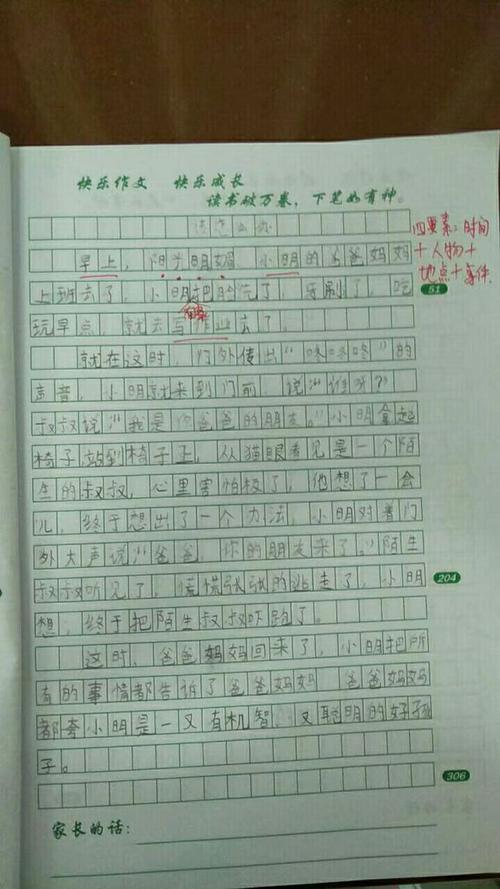 快乐作文 快乐成长
读书破万卷，下笔如有神。
该怎么办
四要素：时间
早上，阳光明媚，小明的爸爸妈妈
十人物十
地点十事件
上班去了，小明把脸洗了，牙刷了，吃
51
玩早点，就去写作业去了。
就在这时，门外传出“咚咚咚”的
声音，小明就来到门前，说“谁呀？”
叔叔说“我是你爸爸的朋友。”小明拿起
椅子站到椅子上，从猫眼看见是一个陌
生的叔叔，心里害怕极了，他想了一会
儿，终于想出了一个办法，小明对着门
外大声说“爸爸，你的朋友来了。”陌生
叔叔听见了，慌慌张张的逃走了，小明
204
想：终于把陌生叔叔吓跑了。
这时，爸爸妈妈回来了，小明把所
有的事情都告诉了爸爸妈妈，爸爸妈妈
都夸小明是一又有机智，又聪明的好孩
子。
306
家长的话：